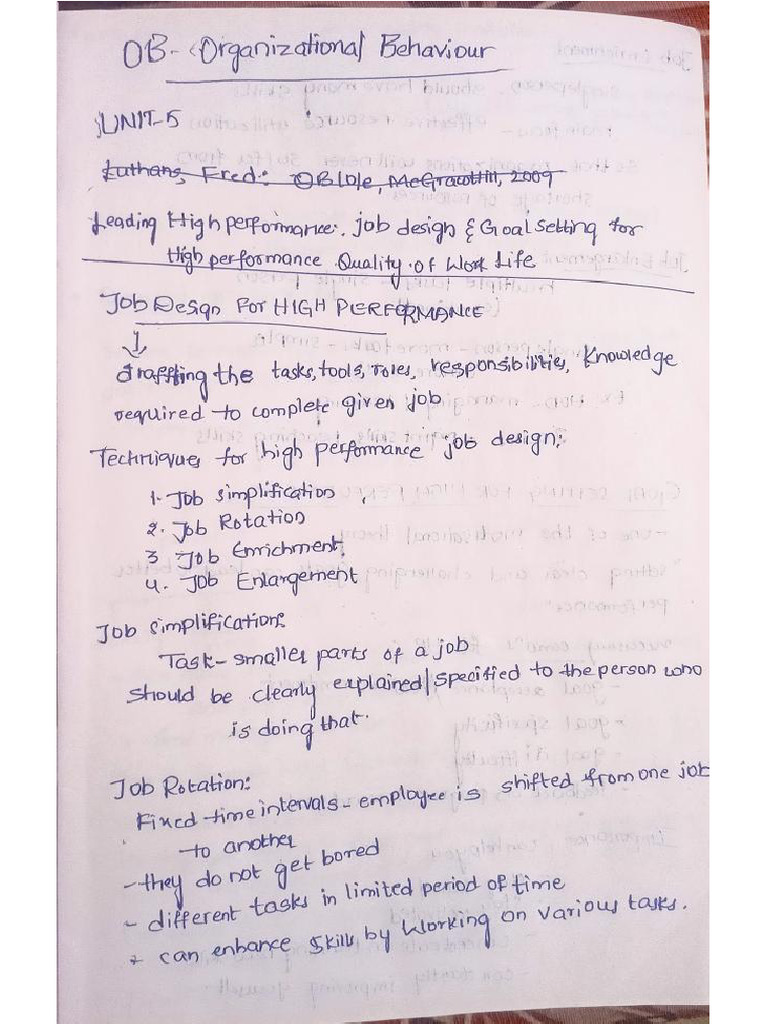 OB - Organizational Behaviour
UNIT-5
Luthans, Fred: OB 10/e, McGrawHill, 2009
Leading High performance: job design & Goal setting for
High performance Quality of Work Life
Job Design For HIGH PERFORMANCE
draffting the tasks, tools, roles, responsibilities, Knowledge
required to complete given job
Techniques for high performance job design:
1. Job simplification
2. Job Rotation
3. Job Enrichment
4. Job Enlargement
Job simplification:
Task - smaller parts of a job
should be clearly explained/specified to the person who
is doing that.
Job Rotation:
Fixed time intervals - employee is shifted from one job
to another
- they do not get bored
- different tasks in limited period of time
- can enhance skills by working on various tasks.